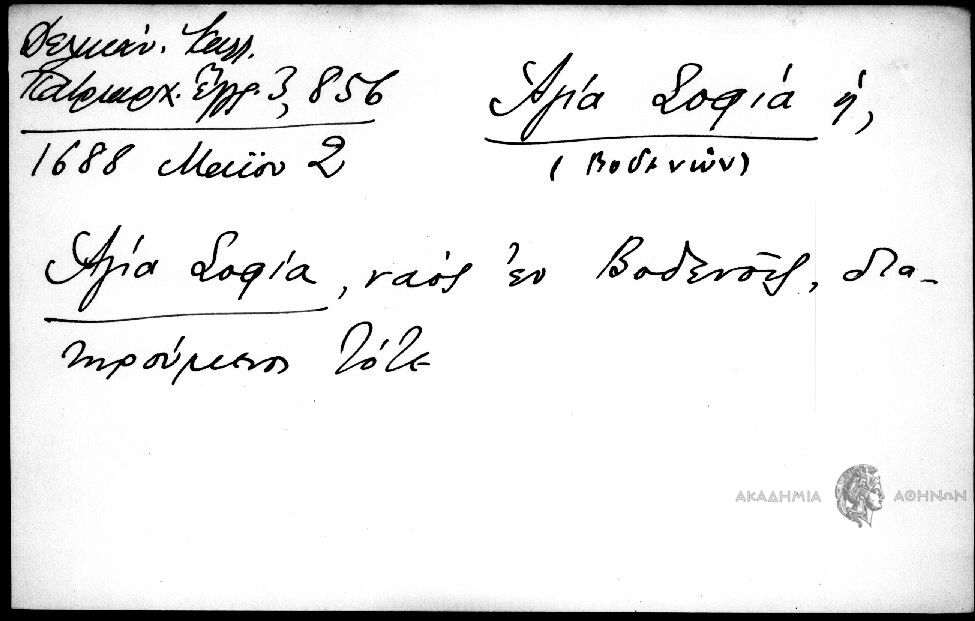 Δελικάν. Καλλ.
Πατριαρχ. Ἔγγρ. 3, 856
1688 Μαΐου 2
Ἁγία Σοφία ἡ,
(Βοδενῶν)
Ἁγία Σοφία, ναός ἐν Βοδενοῖς, δια-
τηρούμενος τότε
ΑΚΑΔΗΜΙΑ ΑΘΗΝΩΝ